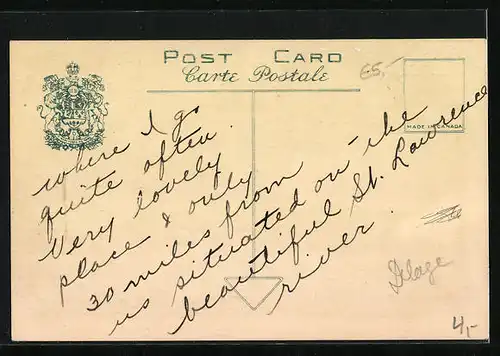 POST CARD
65,-
Carte Postale
MADE IN CANADA
where I go
quite often.
Very lovely
place & only
30 miles from
us situated on the
beautiful St. Lawrence
river.
Delage
4,-